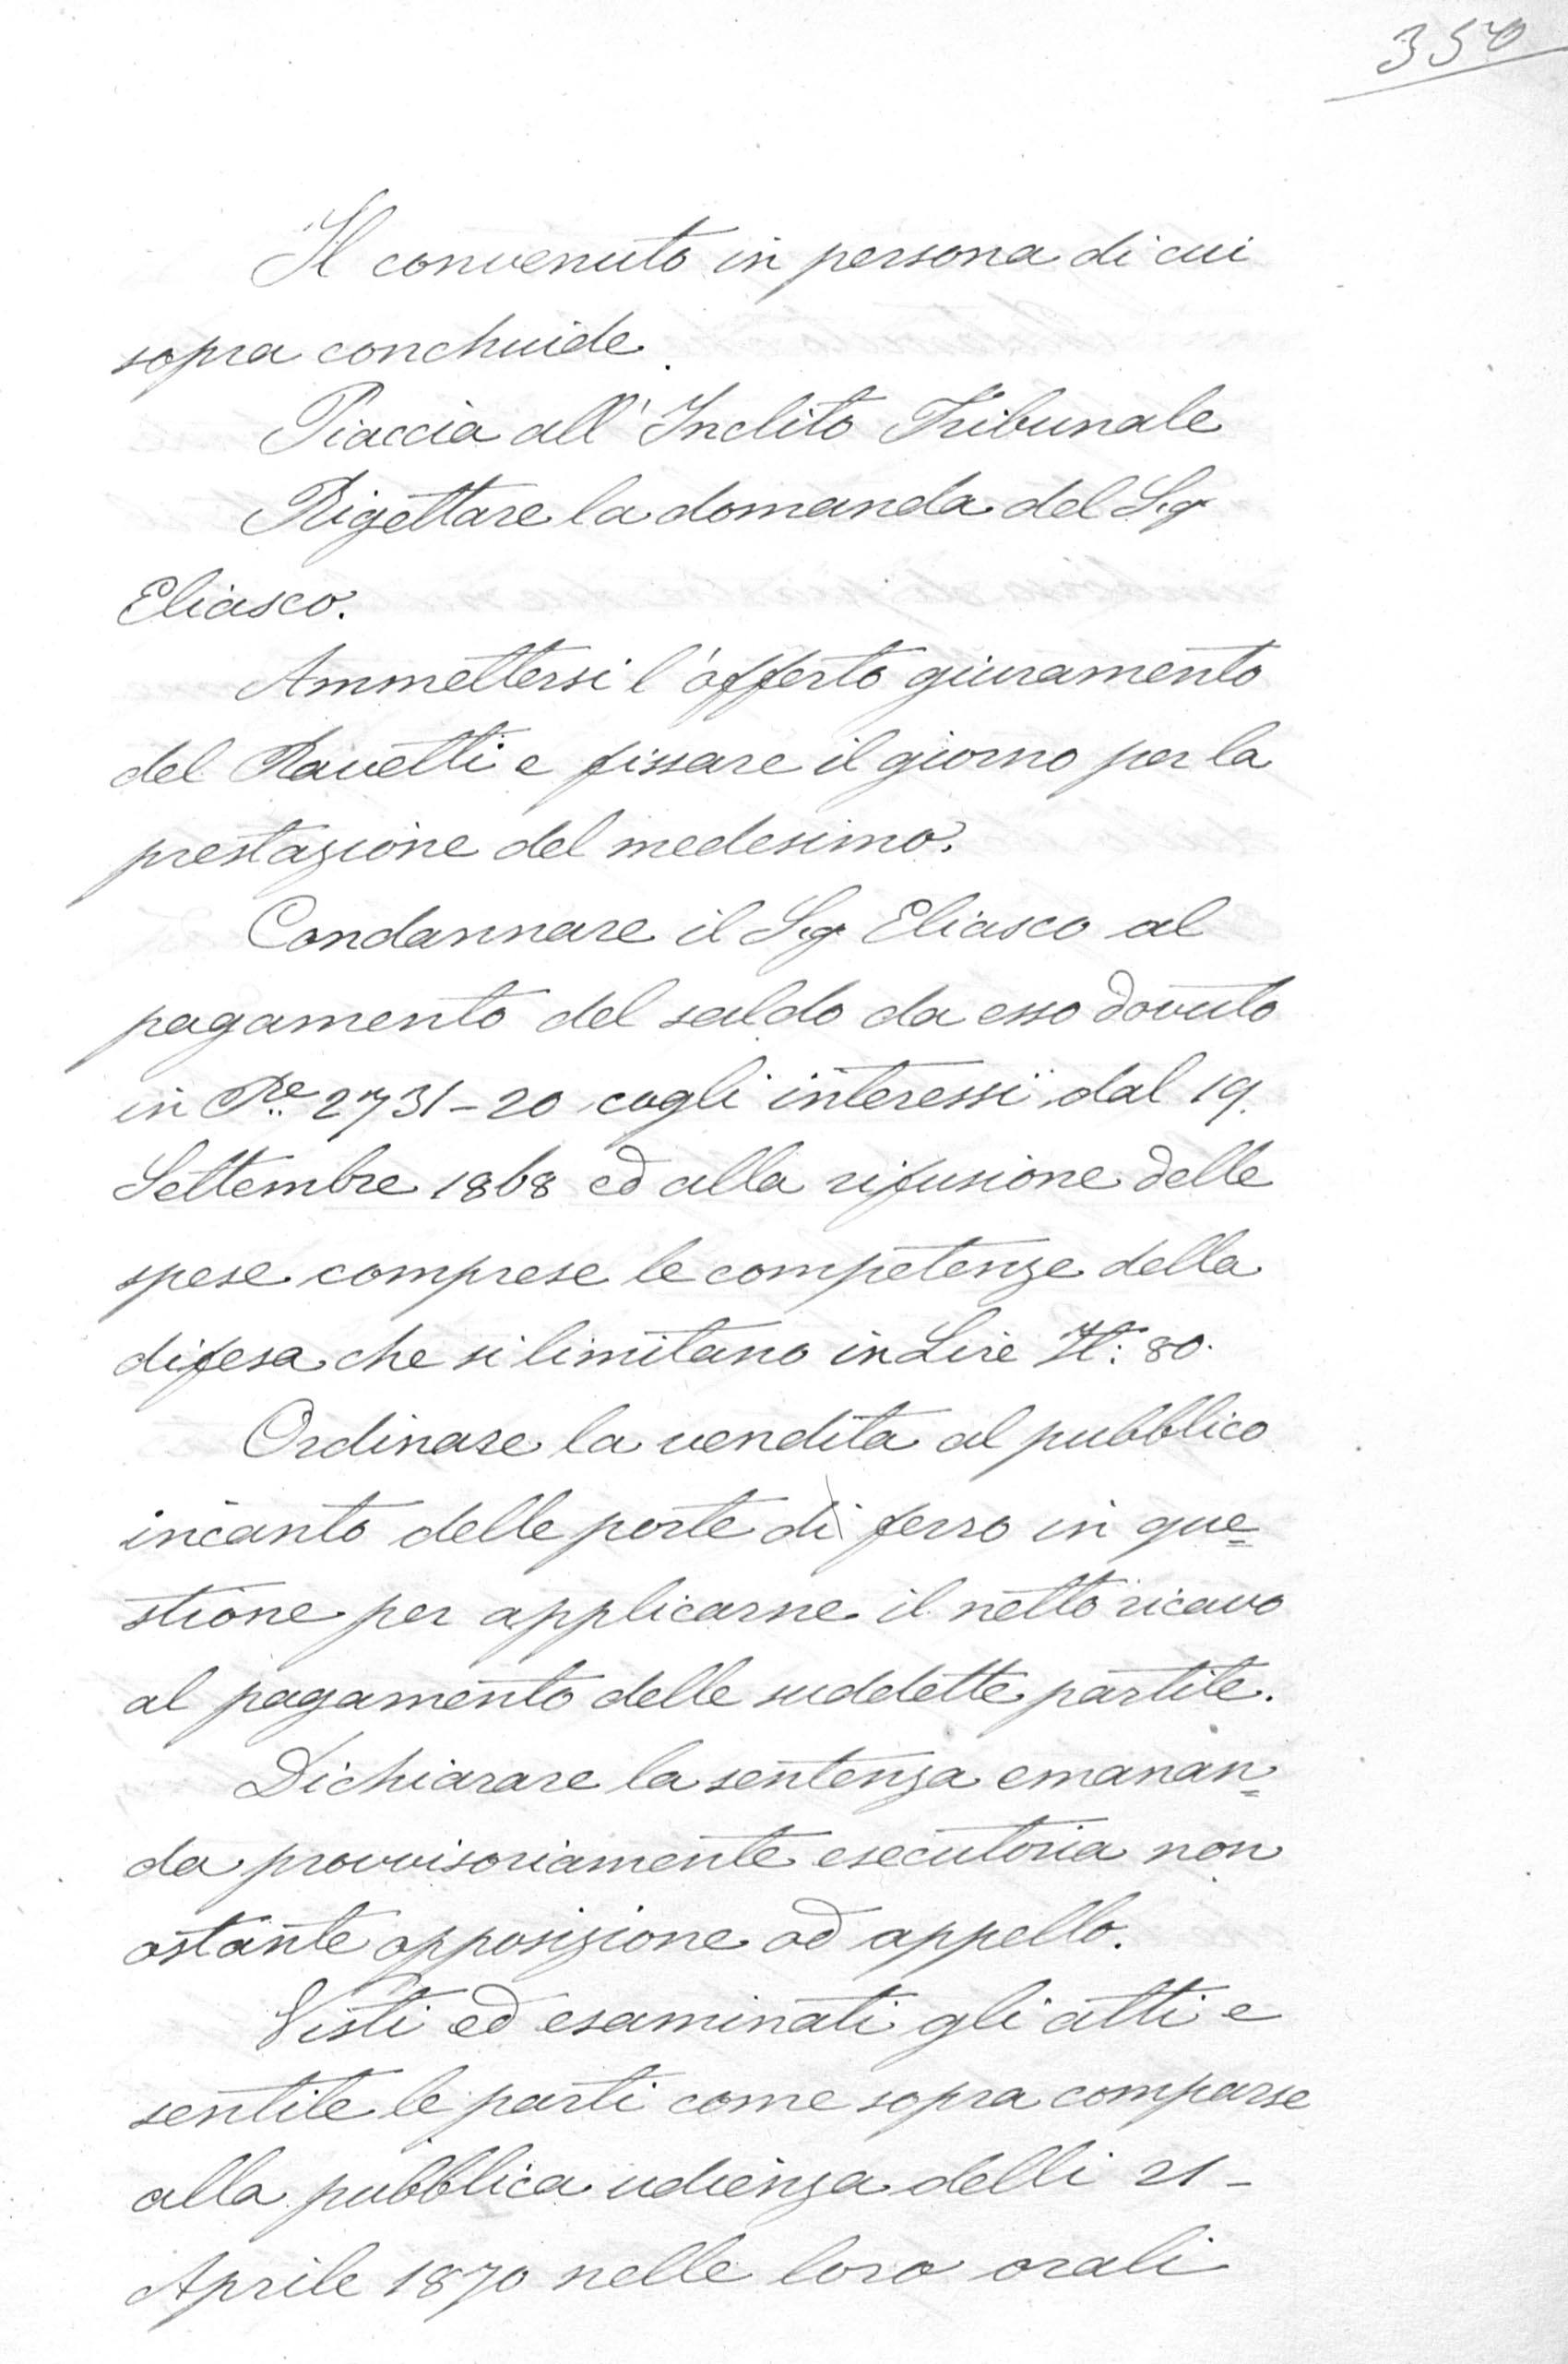 350
Il convenuto in persona di cui
sopra conchiude.
Piaccia all'Inclito Tribunale
Rigettare la domanda del Sig
Eliasco.
Ammettersi l'offerto giuramento
del Ravetti e fissare il giorno per la
prestazione del medesimo.
Condannare il Sig Eliasco al
pagamento del saldo da esso dovuto
in Pe. 2731-20 cogli interessi dal 19.
Settembre 1868 ed alla rifusione delle
spese comprese le competenze della
difesa che si limitano in Lire It: 80.
Ordinare la vendita al pubblico
incanto delle porte di ferro in que=
stione per applicarne il netto ricavo
al pagamento delle suddette partite.
Dichiarare la sentenza emanan=
da provvisoriamente esecutoria non
ostante opposizione od appello.
Visti ed esaminati gli atti e
sentite le parti come sopra comparse
alla pubblica udienza delli 21-
Aprile 1870 nelle loro orali